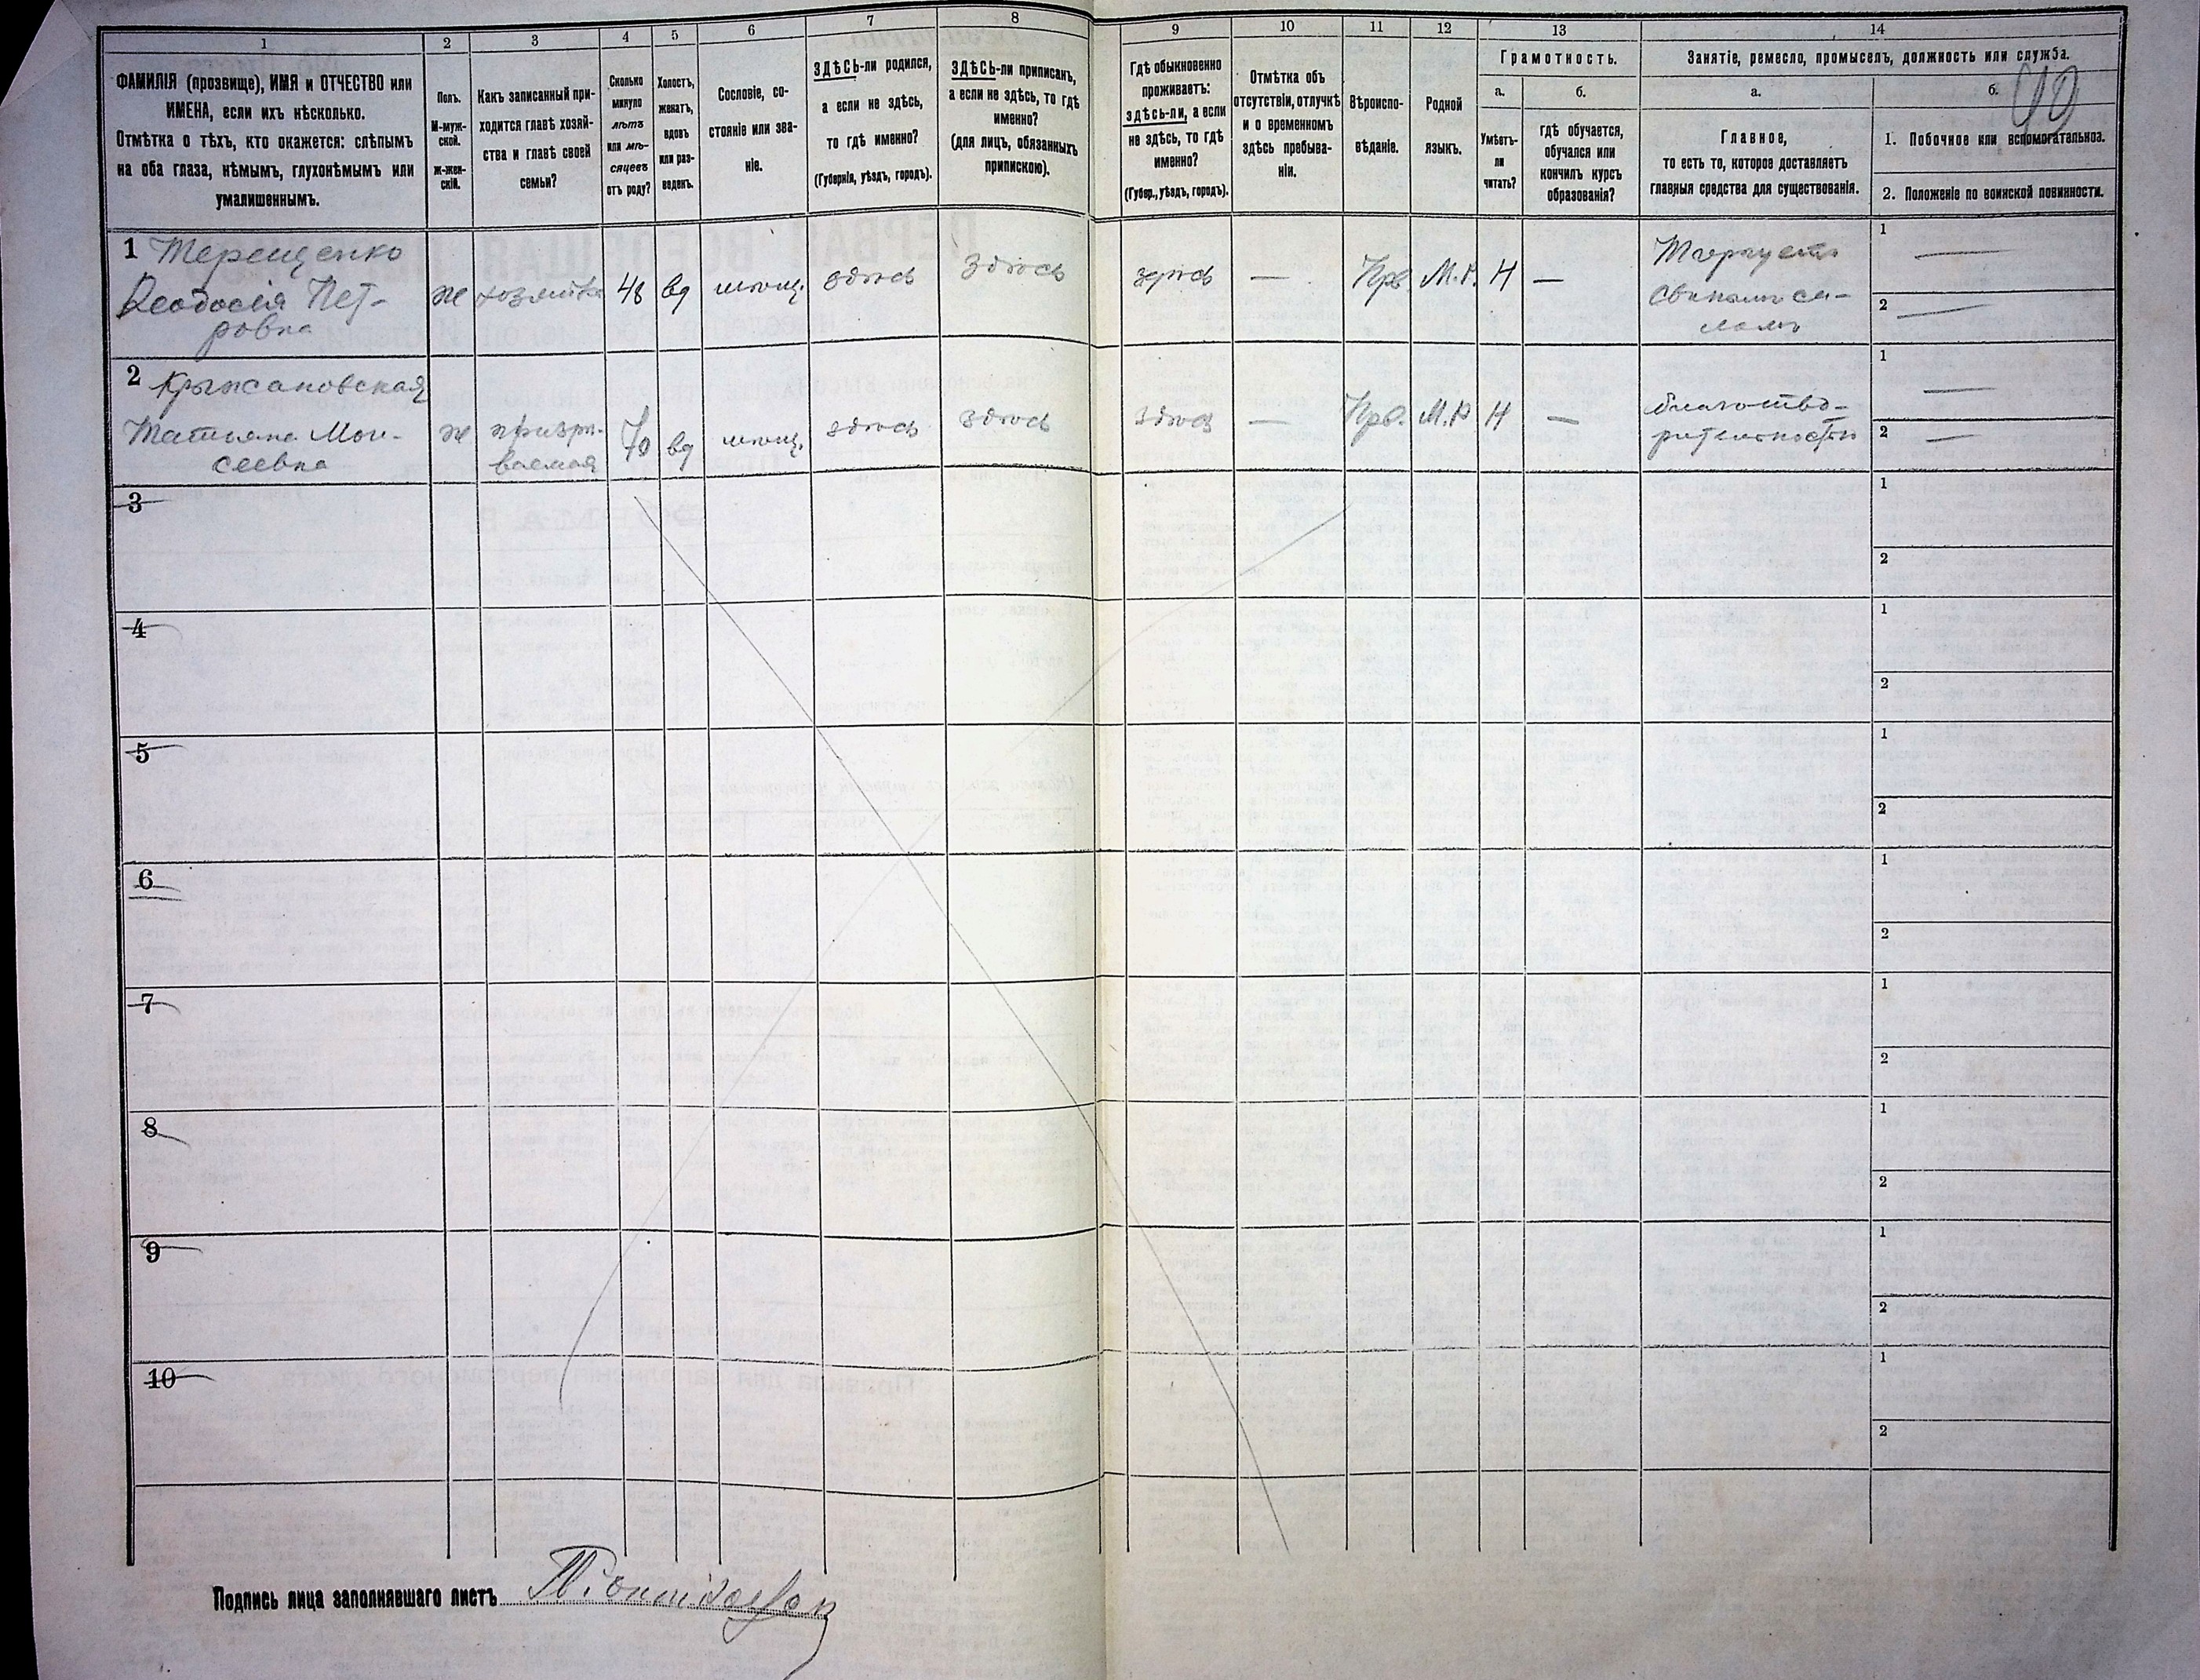 1 2 3 4 5 6 7 8 9 10 11 12 13 14
ФАМИЛІЯ (прозвище), ИМЯ и ОТЧЕСТВО или
ИМЕНА, если ихъ нѣсколько.
Отмѣтка о тѣхъ, кто окажется: слѣпымъ
на оба глаза, нѣмымъ, глухонѣмымъ или
умалишеннымъ.
Полъ.
М-муж-
ской.
ж-жен-
скій.
Какъ записанный при-
ходится главѣ хозяй-
ства и главѣ своей
семьи?
Сколько
минуло
лѣтъ
или мѣ-
сяцевъ
отъ роду?
Холостъ,
женатъ,
вдовъ
или раз-
веденъ.
Сословіе, со-
стояніе или зва-
ніе.
ЗДѢСЬ-ли родился,
а если не здѣсь,
то гдѣ именно?
(Губернія, уѣздъ, городъ).
ЗДѢСЬ-ли приписанъ,
а если не здѣсь, то гдѣ
именно?
(для лицъ, обязанныхъ
припискою).
Гдѣ обыкновенно
проживаетъ:
здѣсь-ли, а если
не здѣсь, то гдѣ
именно?
(Губер., уѣздъ, городъ).
Отмѣтка объ
отсутствіи, отлучкѣ
и о временномъ
здѣсь пребыва-
ніи.
Вѣроиспо-
вѣданіе.
Родной
языкъ.
Грамотность.
а.
Умѣетъ-
ли
читать?
б.
гдѣ обучается,
обучался или
кончилъ курсъ
образованія?
Занятіе, ремесло, промыселъ, должность или служба.
а.
Главное,
то есть то, которое доставляетъ
главныя средства для существованія.
б.
1. Побочное или вспомогательное.
2. Положеніе по воинской повинности.
1 Терещенко
Ѳеодосія Пет-
ровна
ж
хозяйка
48
вд
мѣщ.
здѣсь
здѣсь
здѣсь
—
Прв
М.Р.
Н
—
Торгуетъ
свинымъ са-
ломъ
1 —
2 —
2 Крыжановская
Татьяна Мои-
сеевна
ж
призрѣ-
ваемая
70
вд
мѣщ.
здѣсь
здѣсь
здѣсь
—
Прв.
М.Р
Н
—
благотво-
рительность
1 —
2 —
3
1
2
4
1
2
5
1
2
6
1
2
7
1
2
8
1
2
9
1
2
10
1
2
Подпись лица заполнявшаго листъ